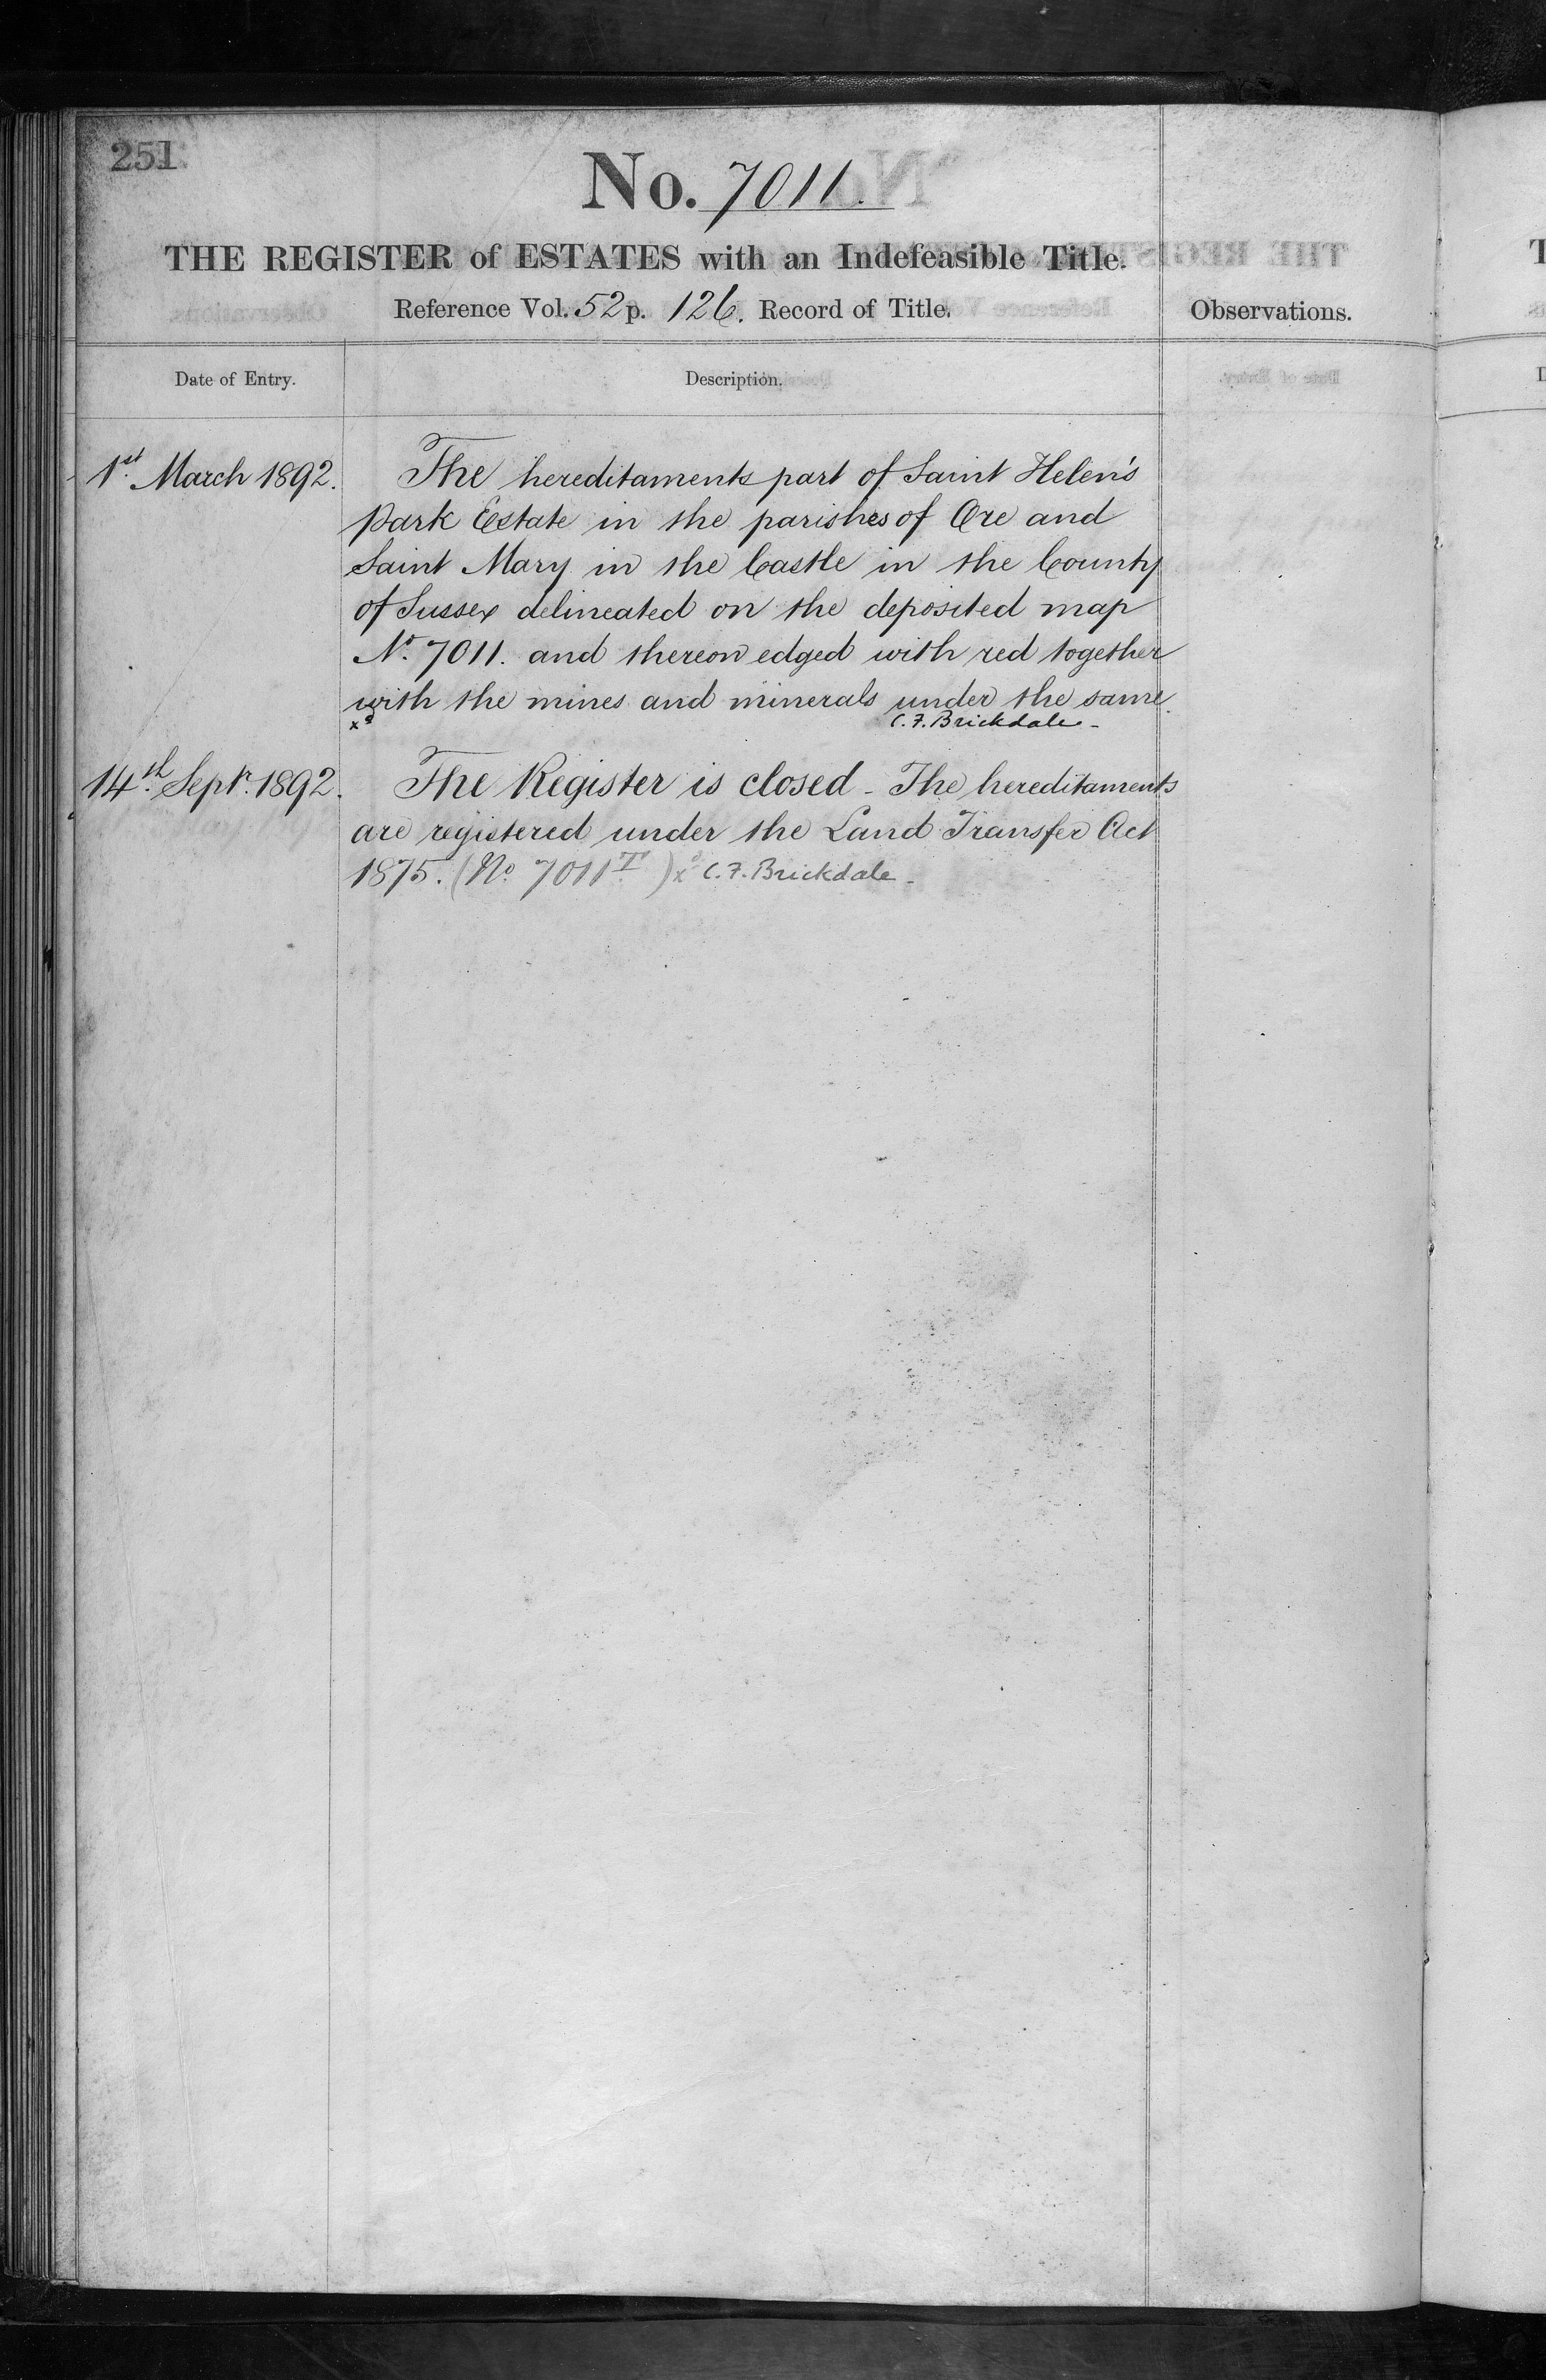 251
No. 7011.
THE REGISTER of ESTATES with an Indefeasible Title.
Reference Vol. 52 p. 126. Record of Title.
Observations.
Date of Entry.
Description.
1st March 1892.
The hereditaments part of Saint Helen's
Park Estate in the parishes of Ore and
Saint Mary in the Castle in the County
of Sussex delineated on the deposited map
No. 7011. and thereon edged with red together
with the mines and minerals under the same.
xd C. F. Brickdale -
14th Septr. 1892.
The Register is closed - The hereditaments
are registered under the Land Transfer Act
1875. (No. 7011T) xd C. F. Brickdale -